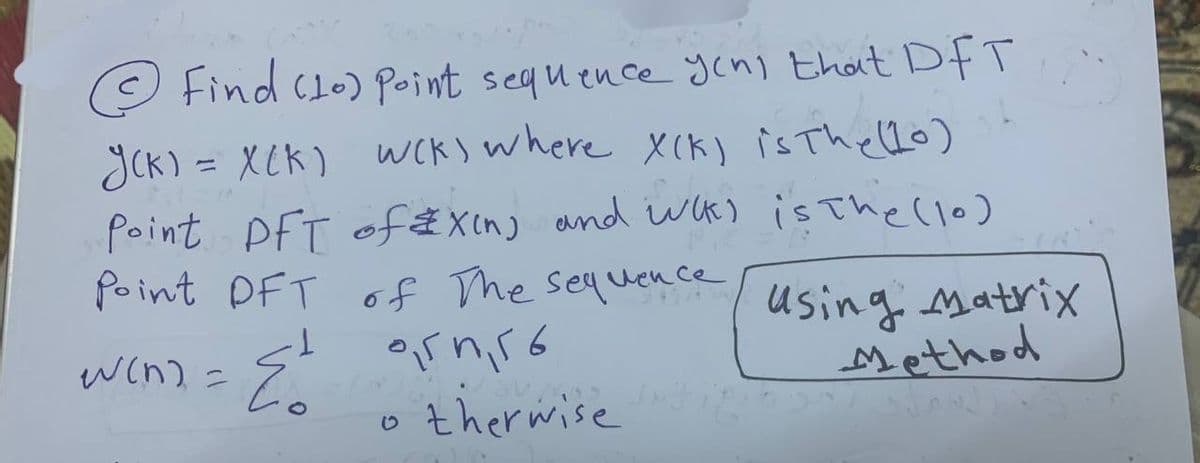 Ⓒ Find (10) Point sequence y(n) that DFT
y(k) = X(k) W(k) where X(k) is The (10)
Point DFT of x(n) and W(k) is The (10)
Point DFT of The sequence
w(n) = { 1 0 ≤ n ≤ 6
0 otherwise
using Matrix
Method